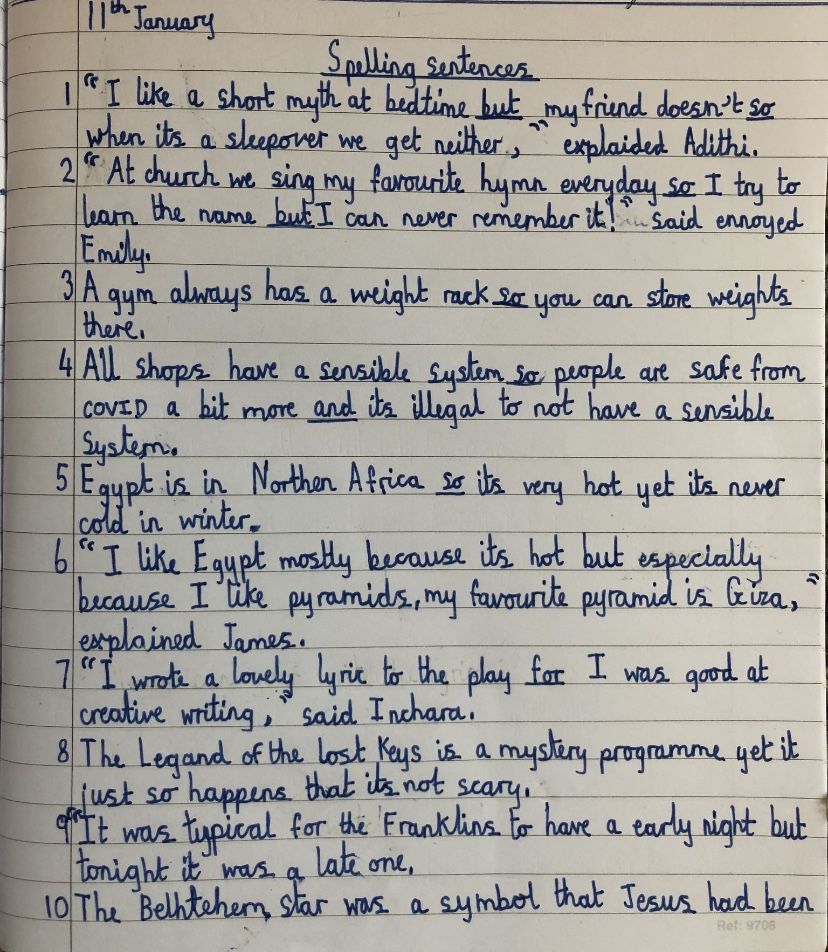 11th January
Spelling sentences
1 "I like a short myth at bedtime but my friend doesn't so
when its a sleepover we get neither," explaided Adithi.
2 "At church we sing my favourite hymn everyday so I try to
learn the name but I can never remember it!" said ennoyed
Emily.
3 A gym always has a weight rack so you can store weights
there.
4 All shops have a sensible system so people are safe from
COVID a bit more and its illegal to not have a sensible
system.
5 Egypt is in Northen Africa so its very hot yet its never
cold in winter.
6 "I like Egypt mostly because its hot but especially
because I like pyramids, my favourite pyramid is Giza,"
explained James.
7 "I wrote a lovely lyric to the play for I was good at
creative writing," said Inchara.
8 The Legand of the lost Keys is a mystery programme yet it
just so happens that its not scary.
9 "It was typical for the Franklins to have a early night but
tonight it was a late one.
10 The Belhtehem star was a symbol that Jesus had been
Ref: 9706